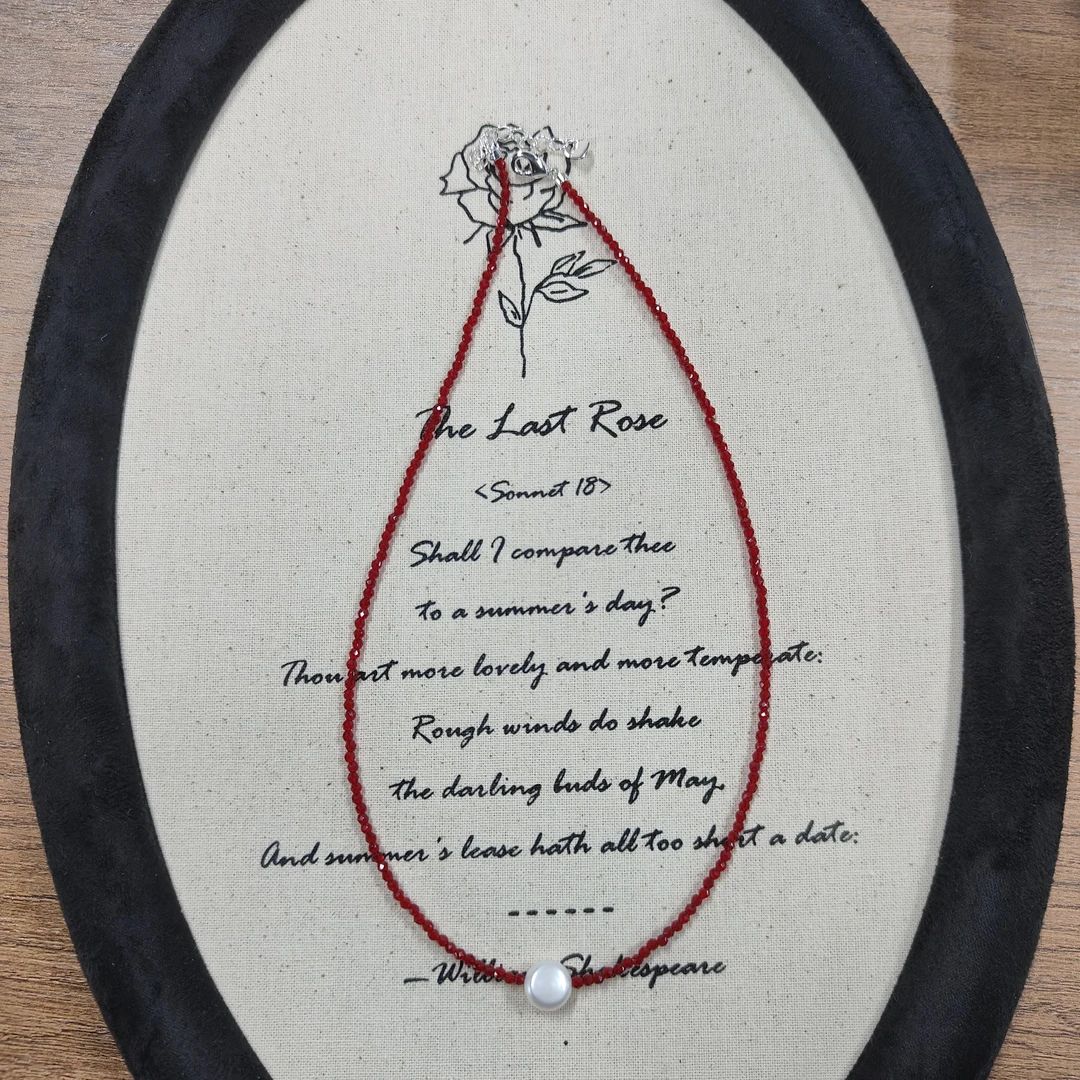 The Last Rose
<Sonnet 18>
Shall I compare thee
to a summer's day?
Thou art more lovely and more temperate:
Rough winds do shake
the darling buds of May,
And summer's lease hath all too short a date:
------
—William Shakespeare